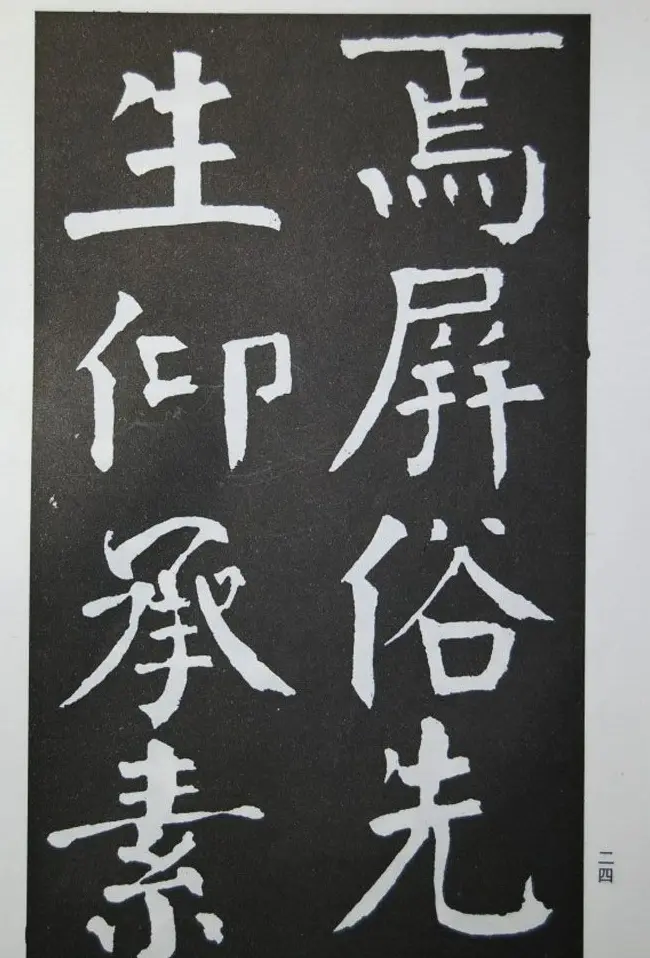 焉屏俗先
生仰承素
二四